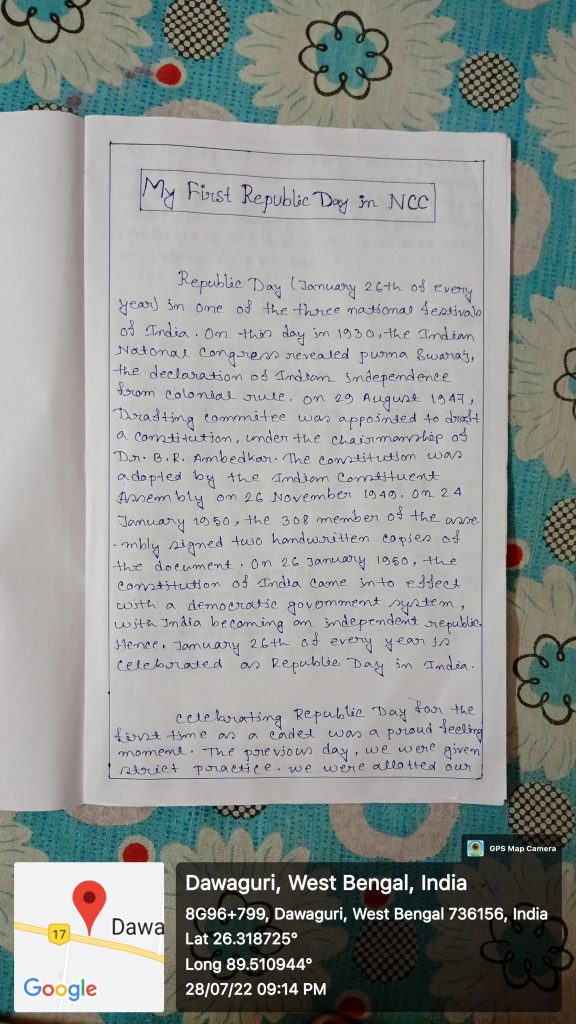 My First Republic Day in NCC
Republic Day (January 26th of every
year) in one of the three national festivals
of India. On this day in 1930, the Indian
Natonal Congress revealed purna Swaraj,
the declaration of Indian independence
from colonial rule. On 29 August 1947,
Drafting committee was appointed to draft
a constitution, under the chairmanship of
Dr. B.R. Ambedkar. The constitution was
adopted by the Indian Constituent
Assembly on 26 November 1949. On 24
January 1950, the 308 member of the asse-
-mbly signed two handwritten copies of
the document. On 26 January 1950, the
constitution of India came into effect
with a democratic government system,
with India becoming an independent republic.
Hence, January 26th of every year is
celebrated as Republic Day in India.
Celebrating Republic Day for the
first time as a cadet was a proud feeling
moment. The previous day, we were given
strict practice. We were allotted our
GPS Map Camera
17
Dawa
Google
Dawaguri, West Bengal, India
8G96+799, Dawaguri, West Bengal 736156, India
Lat 26.318725°
Long 89.510944°
28/07/22 09:14 PM